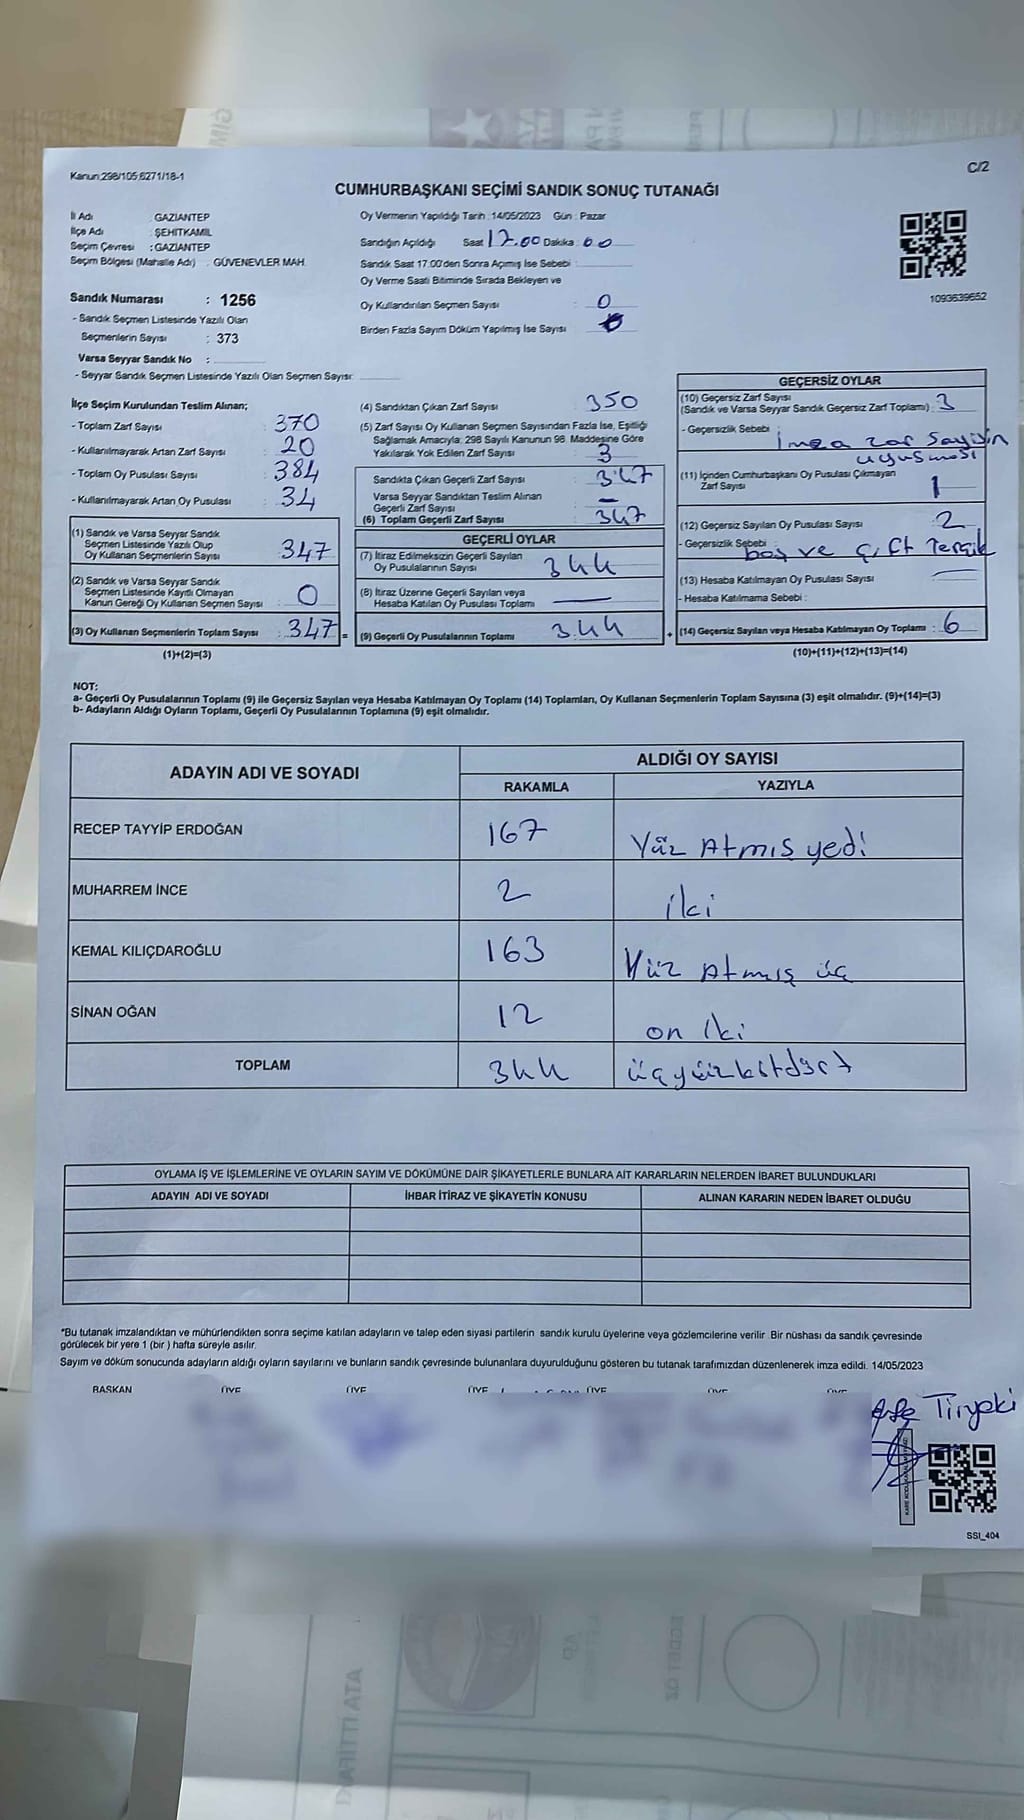 C/2
Kanun:298/105;6271/18-1
CUMHURBAŞKANI SEÇİMİ SANDIK SONUÇ TUTANAĞI
İl Adı : GAZİANTEP
İlçe Adı : ŞEHİTKAMİL
Seçim Çevresi : GAZİANTEP
Seçim Bölgesi (Mahalle Adı) : GÜVENEVLER MAH.
Sandık Numarası : 1256
- Sandık Seçmen Listesinde Yazılı Olan
Seçmenlerin Sayısı : 373
Varsa Seyyar Sandık No :
- Seyyar Sandık Seçmen Listesinde Yazılı Olan Seçmen Sayısı:
Oy Vermenin Yapıldığı Tarih : 14/05/2023 Gün : Pazar
Sandığın Açıldığı Saat 17.00 Dakika : 00
Sandık Saat 17:00'den Sonra Açımış İse Sebebi :
Oy Verme Saati Bitiminde Sırada Bekleyen ve
Oy Kullandırılan Seçmen Sayısı : 0
Birden Fazla Sayım Döküm Yapılmış İse Sayısı
1093639652
İlçe Seçim Kurulundan Teslim Alınan;
- Toplam Zarf Sayısı : 370
- Kullanılmayarak Artan Zarf Sayısı : 20
- Toplam Oy Pusulası Sayısı : 384
- Kullanılmayarak Artan Oy Pusulası : 34
(1) Sandık ve Varsa Seyyar Sandık
Seçmen Listesinde Yazılı Olup
Oy Kullanan Seçmenlerin Sayısı : 347
(2) Sandık ve Varsa Seyyar Sandık
Seçmen Listesinde Kayıtlı Olmayan
Kanun Gereği Oy Kullanan Seçmen Sayısı : 0
(3) Oy Kullanan Seçmenlerin Toplam Sayısı : 347 =
(1)+(2)=(3)
(4) Sandıktan Çıkan Zarf Sayısı : 350
(5) Zarf Sayısı Oy Kullanan Seçmen Sayısından Fazla İse, Eşitliği
Sağlamak Amacıyla; 298 Sayılı Kanunun 98. Maddesine Göre
Yakılarak Yok Edilen Zarf Sayısı : 3
Sandıkta Çıkan Geçerli Zarf Sayısı : 347
Varsa Seyyar Sandıktan Teslim Alınan
Geçerli Zarf Sayısı : —
(6) Toplam Geçerli Zarf Sayısı : 347
GEÇERLİ OYLAR
(7) İtiraz Edilmeksizin Geçerli Sayılan
Oy Pusulalarının Sayısı : 344
(8) İtiraz Üzerine Geçerli Sayılan veya
Hesaba Katılan Oy Pusulası Toplamı : —
(9) Geçerli Oy Pusulalarının Toplamı : 344 +
GEÇERSİZ OYLAR
(10) Geçersiz Zarf Sayısı
(Sandık ve Varsa Seyyar Sandık Geçersiz Zarf Toplamı) : 3
- Geçersizlik Sebebi : İmza zarf sayısın
uyuşması
(11) İçinden Cumhurbaşkanı Oy Pusulası Çıkmayan
Zarf Sayısı : 1
(12) Geçersiz Sayılan Oy Pusulası Sayısı : 2
- Geçersizlik Sebebi : boş ve çift Tercik
(13) Hesaba Katılmayan Oy Pusulası Sayısı : —
- Hesaba Katılmama Sebebi :
(14) Geçersiz Sayılan veya Hesaba Katılmayan Oy Toplamı : 6
(10)+(11)+(12)+(13)=(14)
NOT:
a- Geçerli Oy Pusulalarının Toplamı (9) ile Geçersiz Sayılan veya Hesaba Katılmayan Oy Toplamı (14) Toplamları, Oy Kullanan Seçmenlerin Toplam Sayısına (3) eşit olmalıdır. (9)+(14)=(3)
b- Adayların Aldığı Oyların Toplamı, Geçerli Oy Pusulalarının Toplamına (9) eşit olmalıdır.
ADAYIN ADI VE SOYADI
ALDIĞI OY SAYISI
RAKAMLA YAZIYLA
RECEP TAYYİP ERDOĞAN 167 Yüz Atmış yedi
MUHARREM İNCE 2 iki
KEMAL KILIÇDAROĞLU 163 Yüz Atmış üç
SİNAN OĞAN 12 on iki
TOPLAM 344 üçyüzkırkdört
OYLAMA İŞ VE İŞLEMLERİNE VE OYLARIN SAYIM VE DÖKÜMÜNE DAİR ŞİKAYETLERLE BUNLARA AİT KARARLARIN NELERDEN İBARET BULUNDUKLARI
ADAYIN ADI VE SOYADI İHBAR İTİRAZ VE ŞİKAYETİN KONUSU ALINAN KARARIN NEDEN İBARET OLDUĞU
*Bu tutanak imzalandıktan ve mühürlendikten sonra seçime katılan adayların ve talep eden siyasi partilerin sandık kurulu üyelerine veya gözlemcilerine verilir. Bir nüshası da sandık çevresinde
görülecek bir yere 1 (bir) hafta süreyle asılır.
Sayım ve döküm sonucunda adayların aldığı oyların sayılarını ve bunların sandık çevresinde bulunanlara duyurulduğunu gösteren bu tutanak tarafımızdan düzenlenerek imza edildi. 14/05/2023
BAŞKAN ÜYE ÜYE ÜYE ÜYE ÜYE ÜYE
Tiryaki
SSI_404